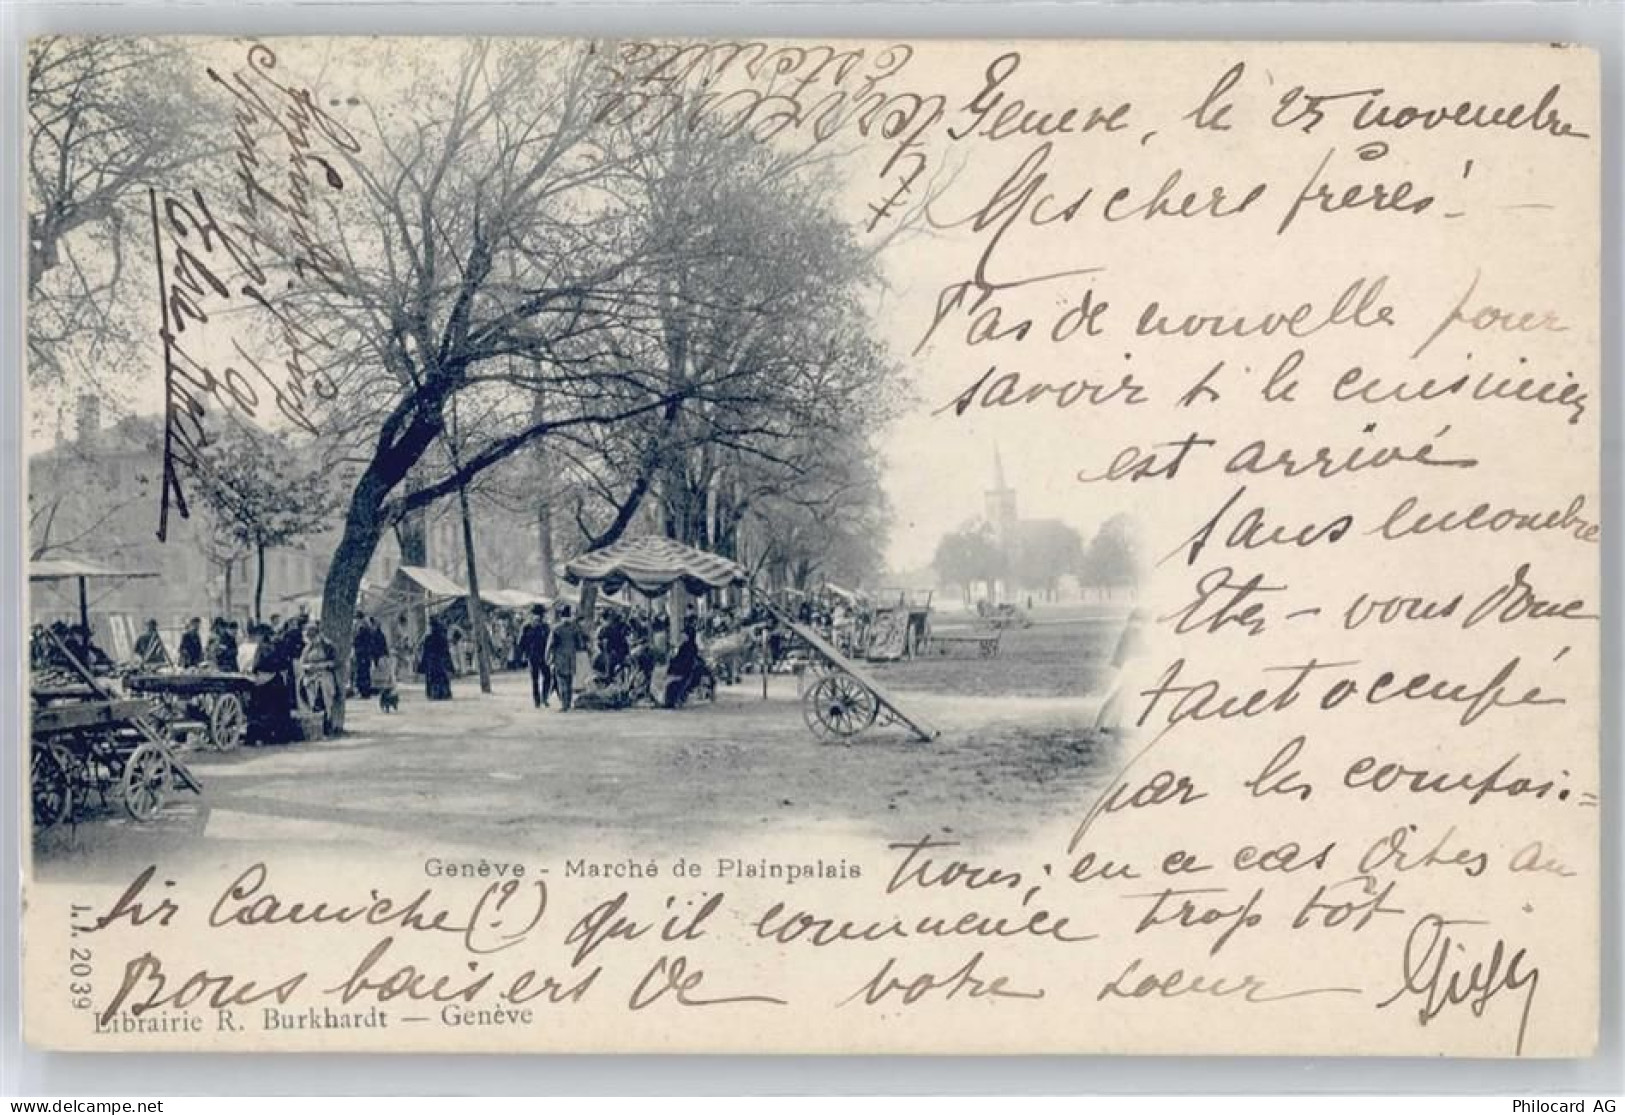 Genève, le 25 novembre
Mes chers frères!
T'as de nouvelle pour
savoir si le cuisinier
est arrivé
sans encombre
Etes-vous donc
tant occupé
par les composi=
tions; en ce cas dites au
sir Caniche (?) qu'il commence trop tôt
Bons baisers de votre soeur Gigy
Genève - Marché de Plainpalais
J.J. 2039
Librairie R. Burkhardt — Genève
Philocard.com/PhilocardAG
Philocard AG